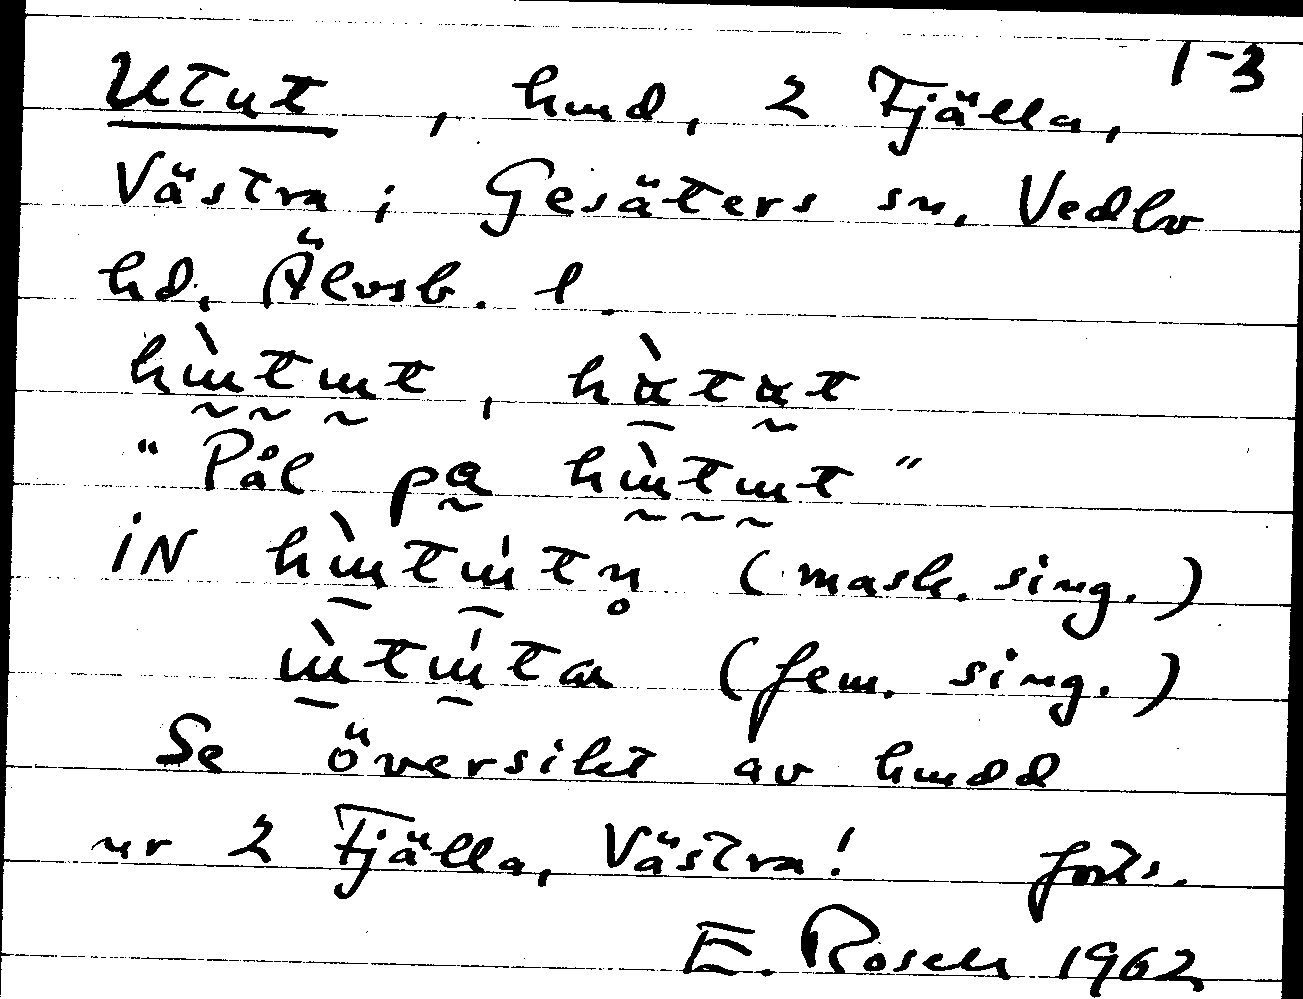 1-3
Utut, hmd, 2 Fjälla,
Västra i Gesäters sn, Vedbo
hd, Älvsb. l.
"Pål på
IN (mask. sing.)
(fem. sing.)
Se översikt av hmdd
ur 2 Fjälla, Västra! forts.
E. Rosell 1962